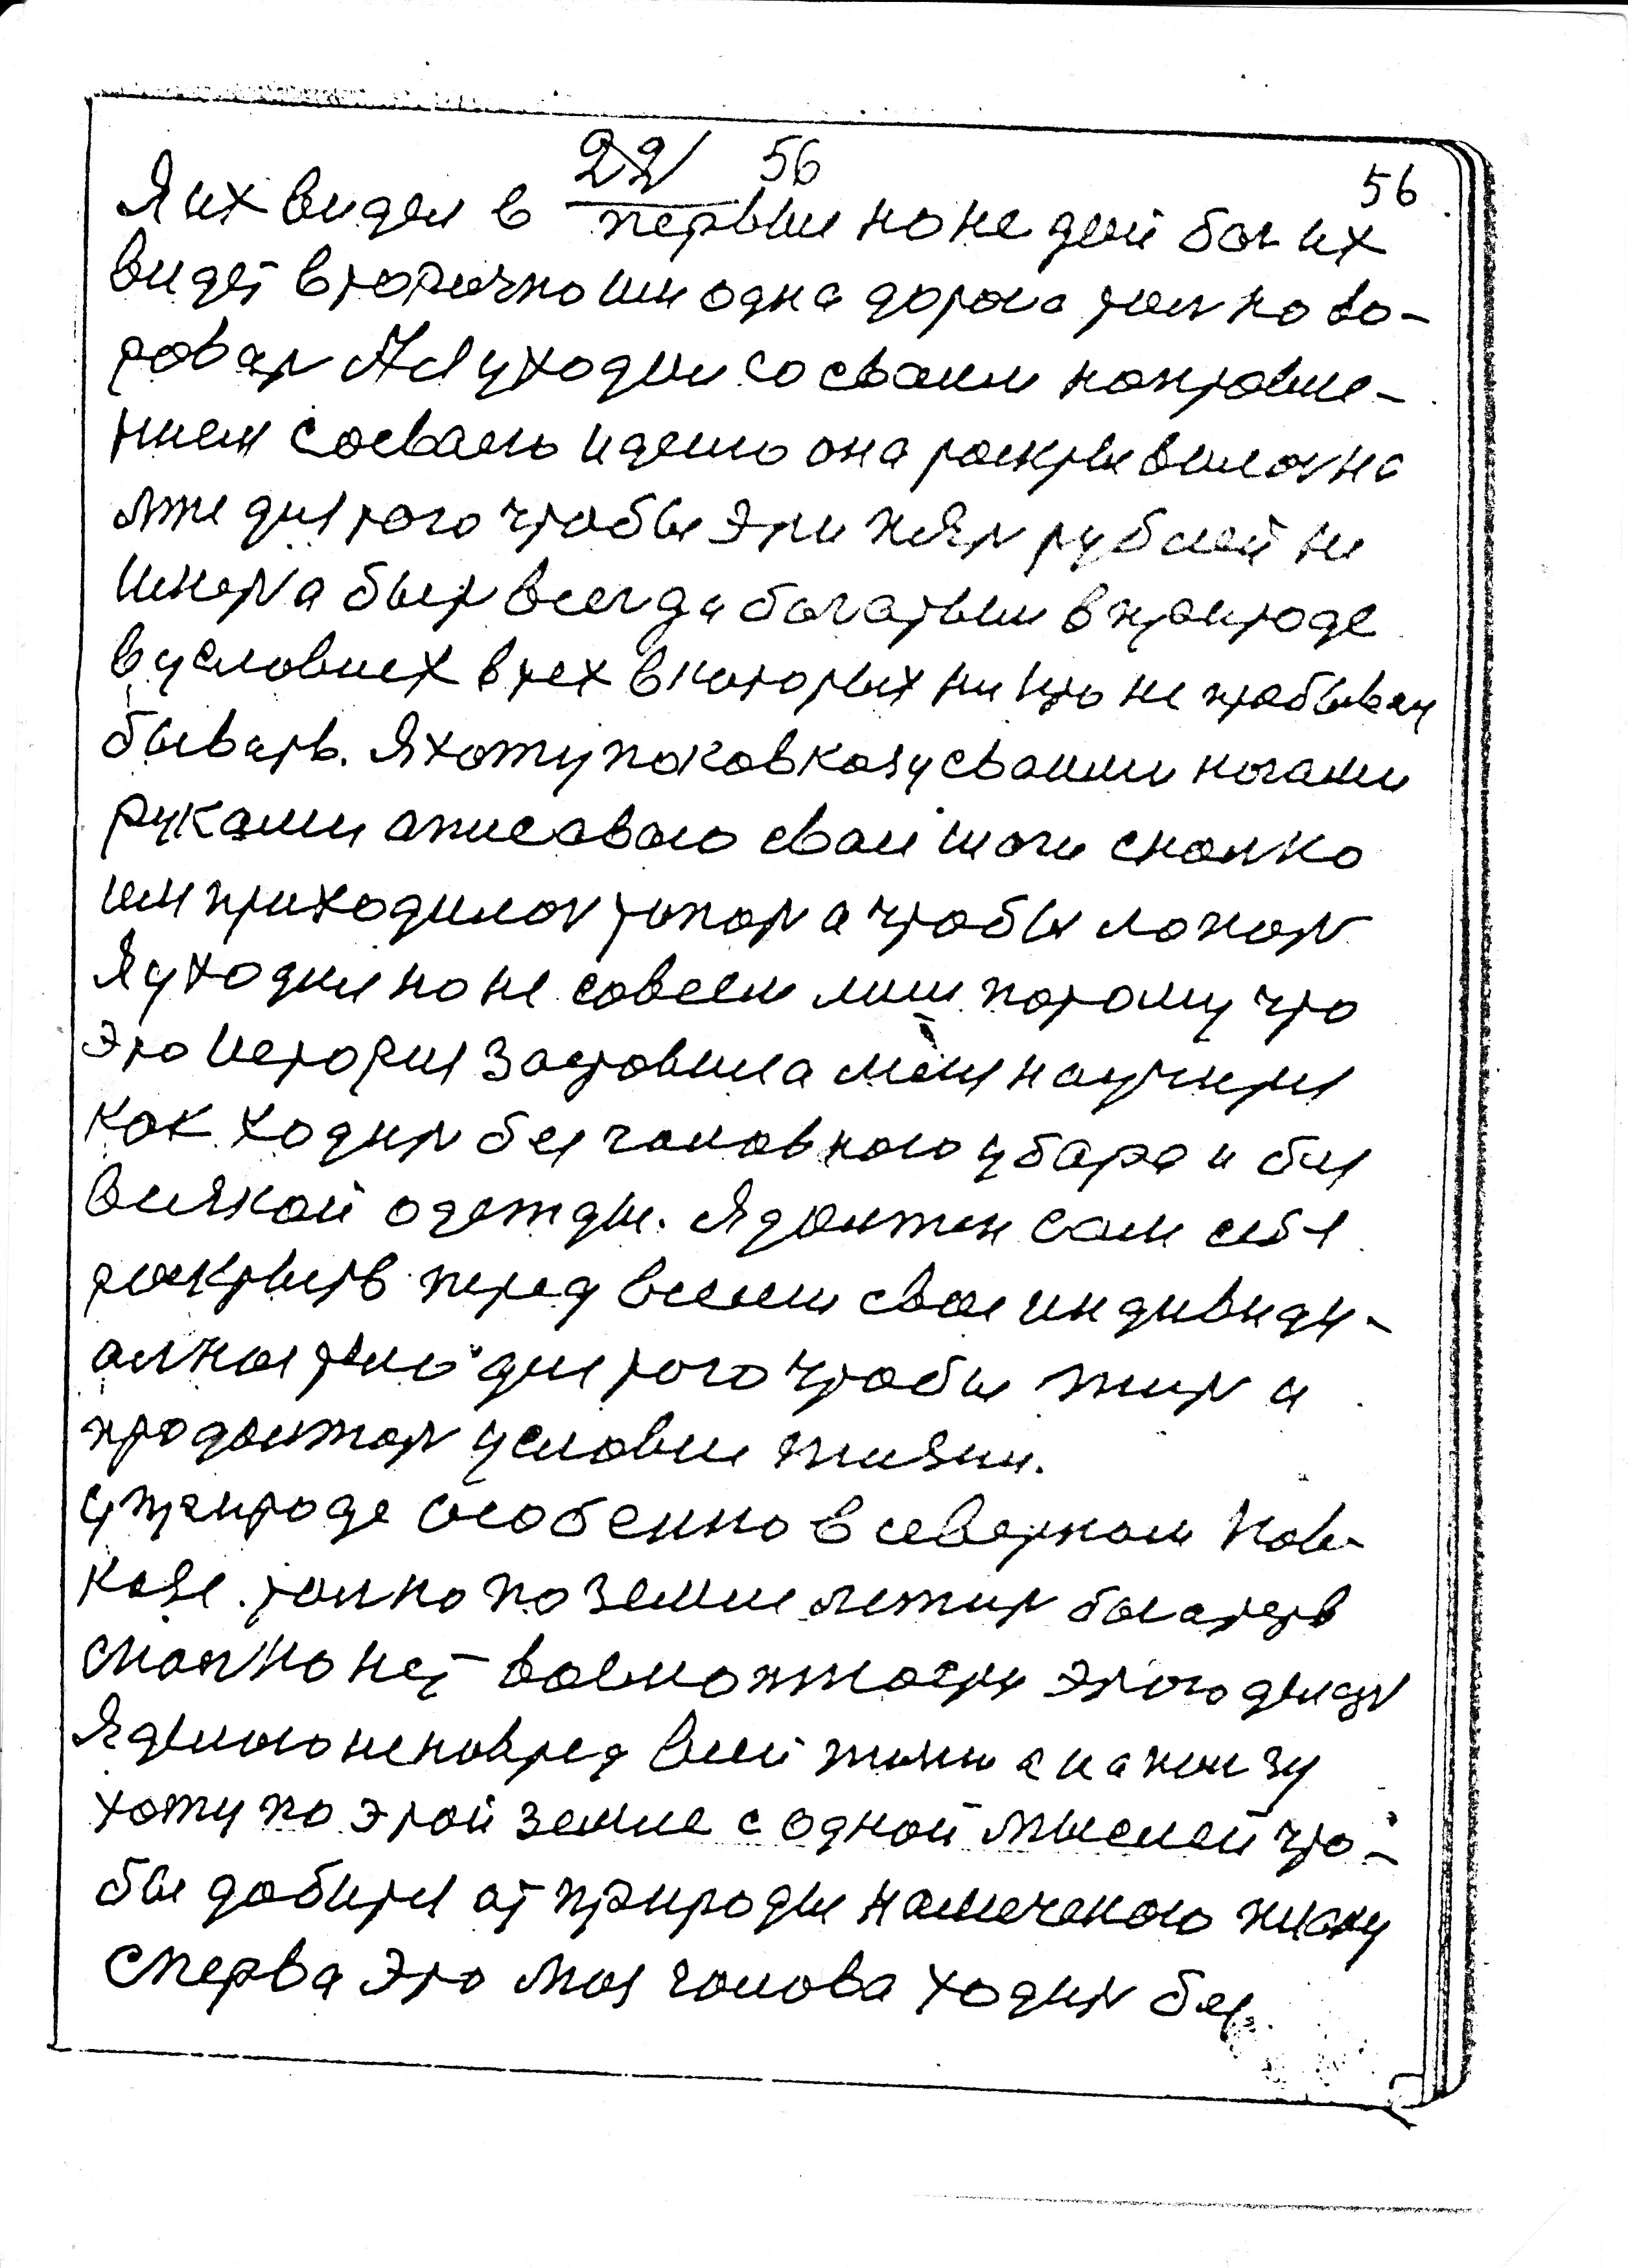 22 56
56
Я их видел в первии но не дай бог их
видет вторично им одна дорога толко во-
роват А я уходил со своим направле-
нием соеваею идеею она раскрывилас на
мне для того чтобы эти пят рублей не
искат а быт всегда богатым в природе
в условиех в тех в которых ни кто не пробывал
бывать. Я хожу по кавказу своими ногами
руками описоваю свои шаги сколко
им приходилос топат а чтобы лопат
Я уходил но не совсем лиш потому что
это история заставила меня научится
как ходит без головного убара и без
всякой одежды. Я должен сам себя
раскрыть перед всеми свое индивиду-
алное тело для того чтобы жит и
продолжат условие жизни.
у природе особенно в северном Кав-
казе. толко по земле лежит богатств
сколко нет возможности этого описат
Я делаю не на вред всей жизни а на ползу
хожу по этой земле с одной мыслей что-
бы добится от природы намеченаю
сперва это моя голова ходит без